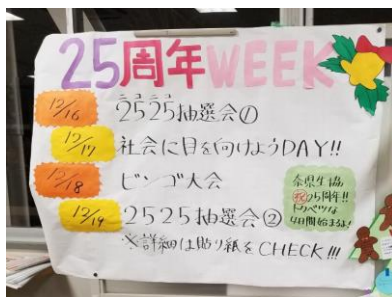 25周年WEEK
12/16 2525抽選会①
ニコニコ
12/17 社会に目を向けようDAY!!
12/18 ビンゴ大会
12/19 2525抽選会②
※詳細は貼り紙をCHECK!!!
県生協
祝25周年!!
トクベツな
4日間始まるよ!